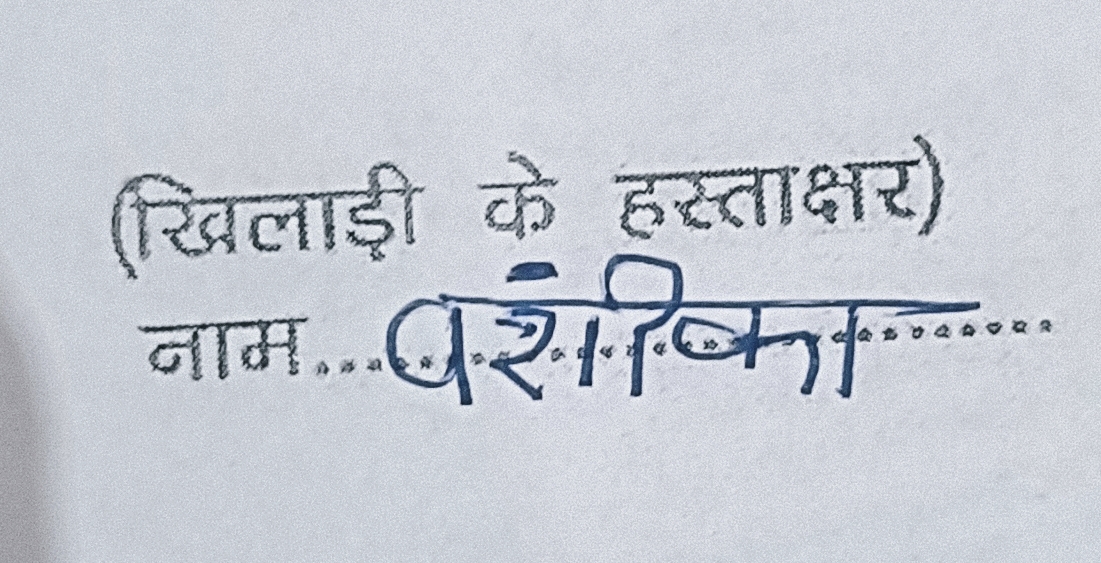 (खिलाड़ी के हस्ताक्षर)
नाम....वंशीका..........